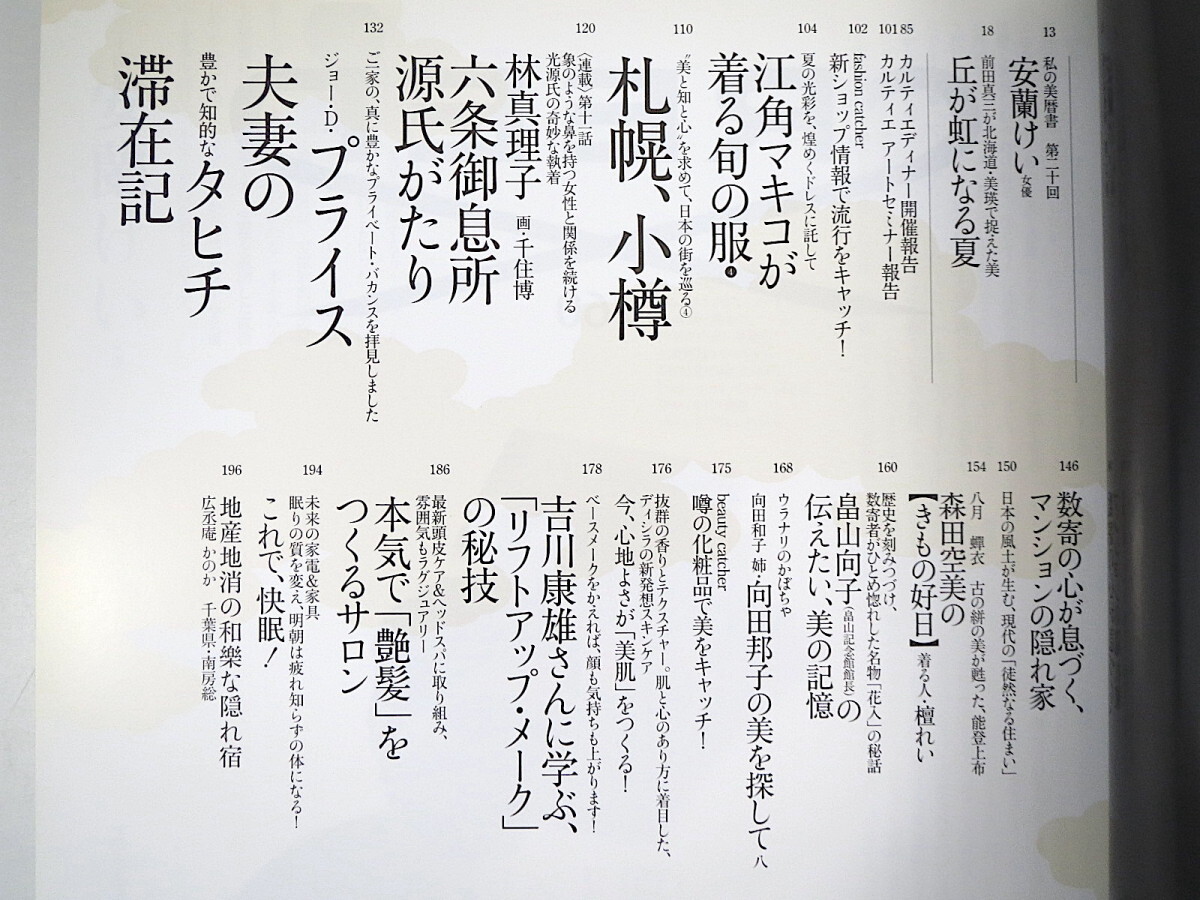 13
私の美暦書 第二十回
安蘭けい 女優
18
前田真三が北海道・美瑛で捉えた美
丘が虹になる夏
85
カルティエディナー開催報告
101
カルティエ アートセミナー報告
102
fashion catcher
新ショップ情報で流行をキャッチ！
104
夏の光彩を、煌めくドレスに託して
江角マキコが
着る旬の服❹
110
“美と知と心”を求めて、日本の街を巡る④
札幌、小樽
120
〈連載〉第十一話
象のような鼻を持つ女性と関係を続ける
光源氏の奇妙な執着
林真理子 画・千住博
六条御息所
源氏がたり
132
ご一家の、真に豊かなプライベート・バカンスを拝見しました
ジョー・D・プライス
夫妻の
豊かで知的なタヒチ
滞在記
146
数寄の心が息づく、
マンションの隠れ家
150
日本の風土が生む、現代の「徒然なる住まい」
154
八月 蟬衣 古の絣の美が甦った、能登上布
森田空美の
【きもの好日】着る人・檀れい
160
歴史を刻みつづけ、
数寄者がひとめ惚れした名物「花入」の秘話
畠山向子（畠山記念館館長）の
伝えたい、美の記憶
168
ウラナリのかぼちゃ
向田和子 姉・向田邦子の美を探して 八
175
beauty catcher
噂の化粧品で美をキャッチ！
176
抜群の香りとテクスチャー。肌と心のあり方に着目した、
ディシラの新発想スキンケア
今、心地よさが「美肌」をつくる！
178
ベースメークをかえれば、顔も気持ちも上がります！
吉川康雄さんに学ぶ、
「リフトアップ・メーク」
の秘技
186
最新頭皮ケア&ヘッドスパに取り組み、
雰囲気もラグジュアリー
本気で「艶髪」を
つくるサロン
194
未来の家電&家具
眠りの質を変え、明朝は疲れ知らずの体になる！
これで、快眠！
196
地産地消の和樂な隠れ宿
広丞庵 かのか 千葉県・南房総